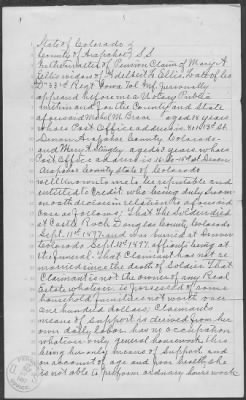 State of Colorado }
County of Arapahoe } S.S.
In the matter of Pension Claim of Mary A.
Ellis widow of Adelbert A. Ellis late of Co
D 33d Regt Iowa Vol Inf. Personally
appeared before me a Notary Public
within and for the County and State
aforesaid Mabel M. Bran aged 28 years
whose Post Office address is St.
Denver Arapahoe County Colorado
and Mary A. aged 53 years whose
Post Office address is St Denver
Arapahoe County State of Colorado
well known to me to be reputable and
entitled to credit who being duly sworn
on oath declare in relation to aforesaid
case as follows; That the Soldier died
at Castle Rock Douglas County Colorado
Sept. 11th 1897 and was buried at Denver
Colorado Sept. 12th 1897 being at
the funeral. That Claimant has not re
married since the death of Soldier. That
Claimant is not the owner of any Real
Estate whatever is possessed of some
household furniture not worth over
one hundred dollars. Claimants
means of support is derived from her
own daily labor has no occupation
whatever only general housework this
being her only means of support and
on account of age and poor health she
is not able to perform ordinary house work